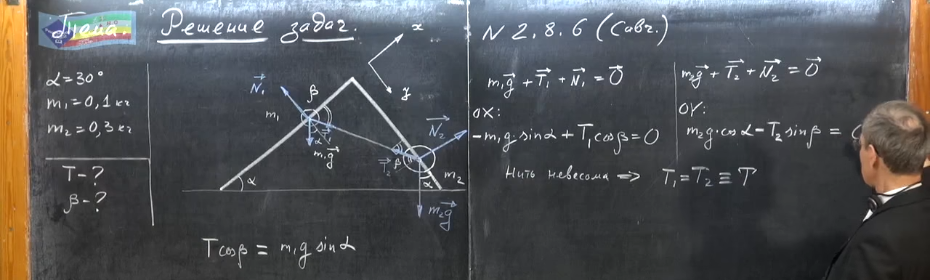 Тема
Решение задач.
N 2.8.6 (Савч.)
α=30°
m₁=0,1 кг
m₂=0,3 кг
T-?
β-?
x
y
N⃗₁
β
m₁
α
m₁g⃗
α
T⃗₂
β
N⃗₂
α
m₂
m₂g⃗
Tcosβ = m₁g sinα
m₁g⃗ + T⃗₁ + N⃗₁ = 0⃗
OX:
-m₁g·sinα + T₁cosβ = 0
m₂g⃗ + T⃗₂ + N⃗₂ = 0⃗
OY:
m₂g·cosα - T₂sinβ =
Нить невесома ⇒ T₁ = T₂ ≡ T